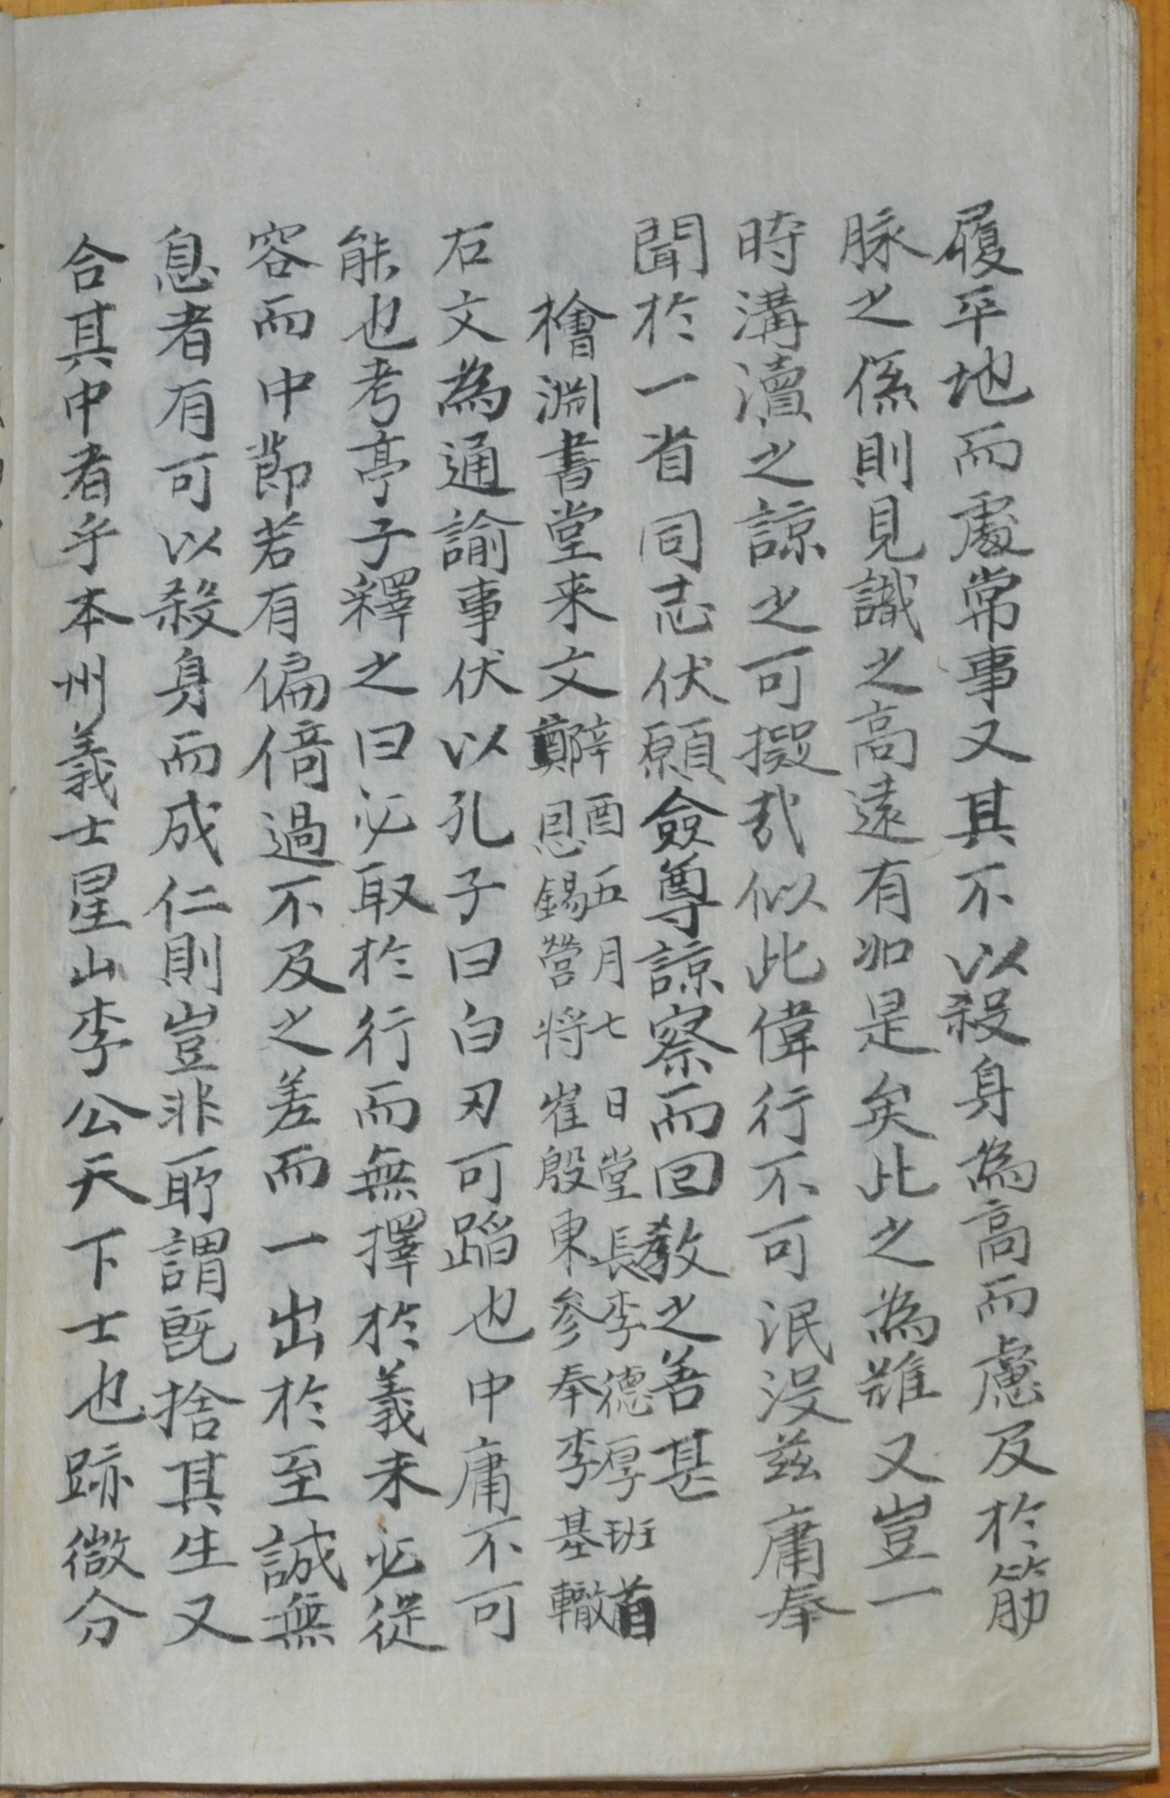 履平地而處常事又其不以殺身為高而慮及於筋
脉之係則見識之高遠有如是矣此之為難又豈一
時溝瀆之諒之可擬哉似此偉行不可泯沒茲庸奉
聞於一省同志伏願僉尊諒察而回教之善甚
檜淵書堂来文
辛酉五月七日堂長李德厚班首
鄭思錫營將崔殷東參奉李基轍
右文為通諭事伏以孔子曰白刃可蹈也中庸不可
能也考亭子釋之曰必取於行而無擇於義未必從
容而中節若有偏倚過不及之差而一出於至誠無
息者有可以殺身而成仁則豈非所謂旣捨其生又
合其中者乎本州義士星山李公天下士也跡微分